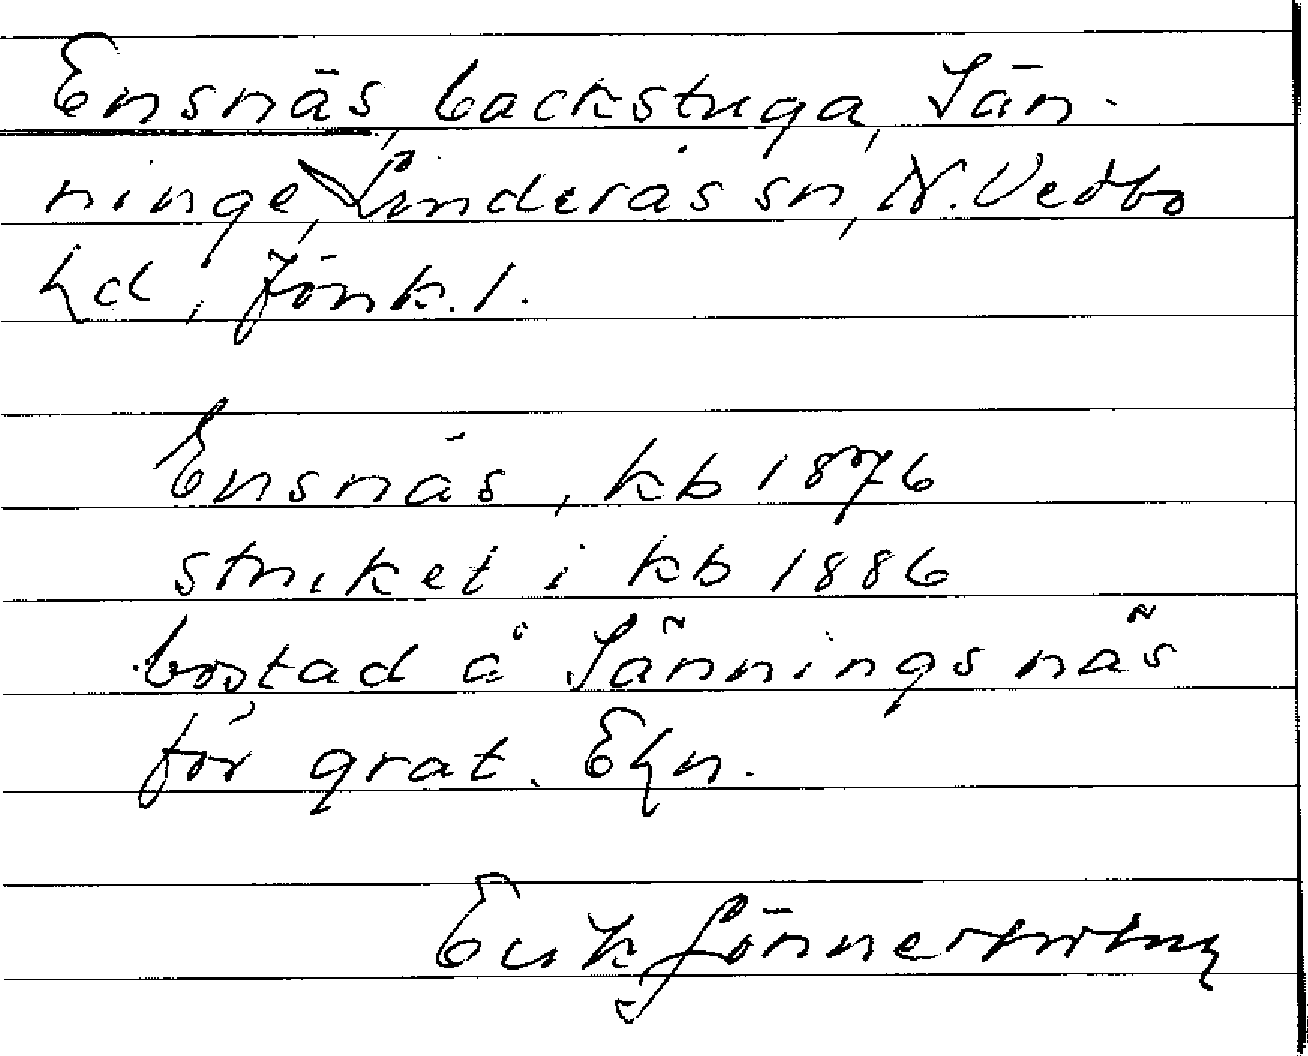 Ensnäs, backstuga, Sän-
ninge, Linderås sn, N. Vedbo
hd, Jönk. l.
Ensnäs, kb 1876
struket i kb 1886
bostad å Sänningsnäs
för grat. Ehn.
Erik